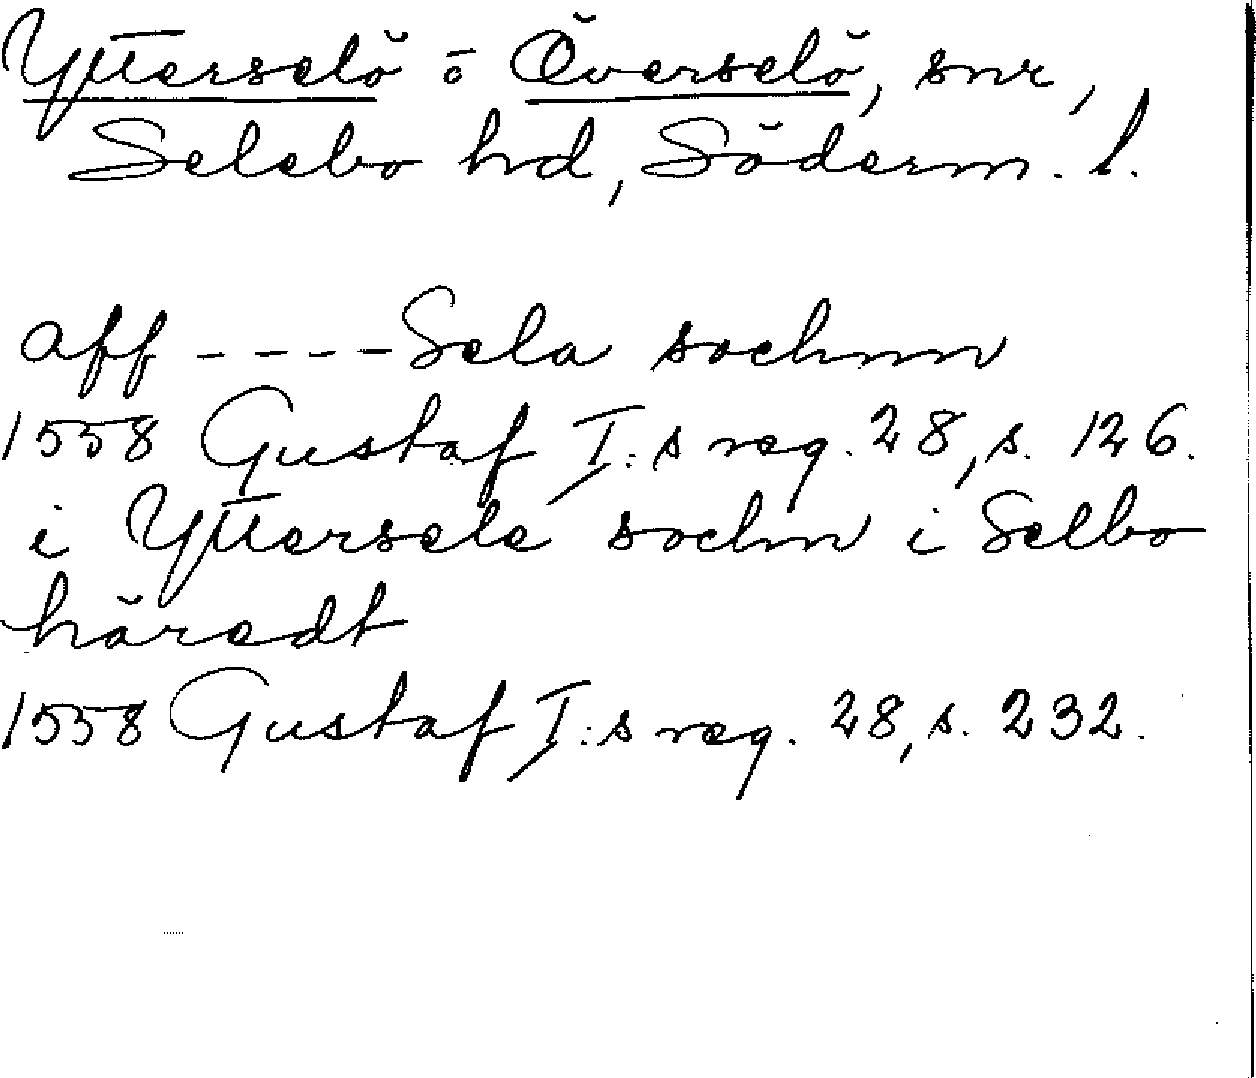 Ytterselö o̅ Överselö, snr,
Selebo hd, Söderm. l.
aff ---- Sela sochnn
1558 Gustaf I:s reg. 28, s. 126.
i Yttersele sochn i Selbo
häredt
1558 Gustaf I:s reg. 28, s. 232.